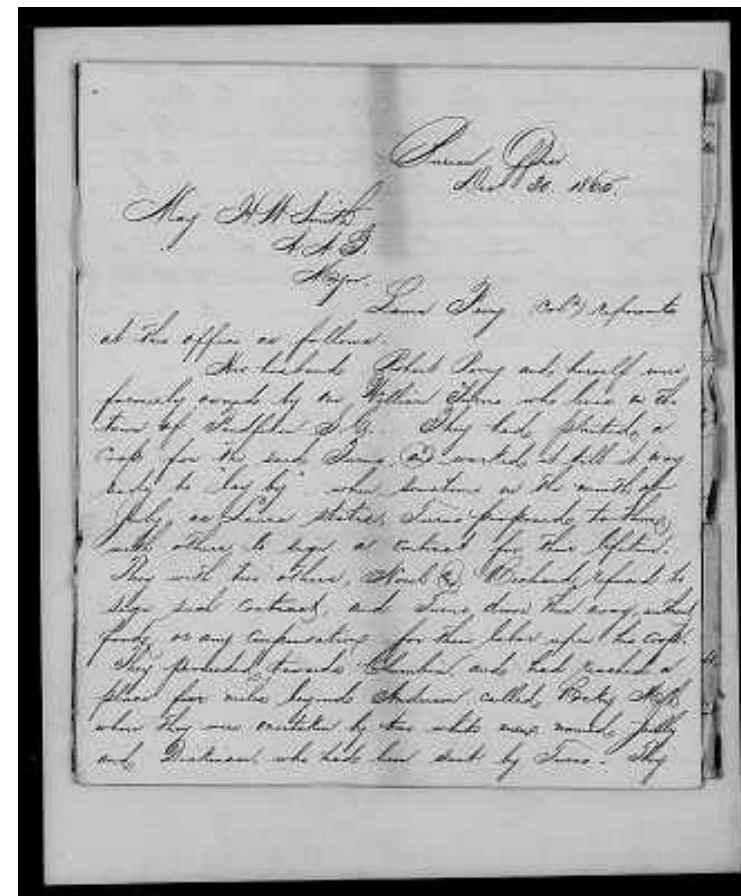 Bureau Office
Dec 20. 1865.
Maj H W Smith
A. A. G.
Major.
Laura Perry (col'd) represents
at this office as follows.
Her husband Robert Perry and herself were
formerly owned by one William who lives in the
town of S. C. They had planted a
crop for the said and worked it till it was
ready to "lay by" when sometime in the month of
July, as Laura states, proposed to them,
with others to sign a contract for their lifetime.
They with two others, Novel & Richard, refused to
sign such contract, and drove them away without
food, or any compensation for their labor upon his crop.
They proceeded towards Columbia and had reached a
place five miles beyond Anderson called
when they were overtaken by two white men named Jolly
and Dickinson who had been sent by They